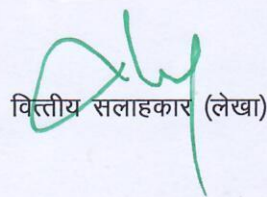 वित्तीय सलाहकार (लेखा)